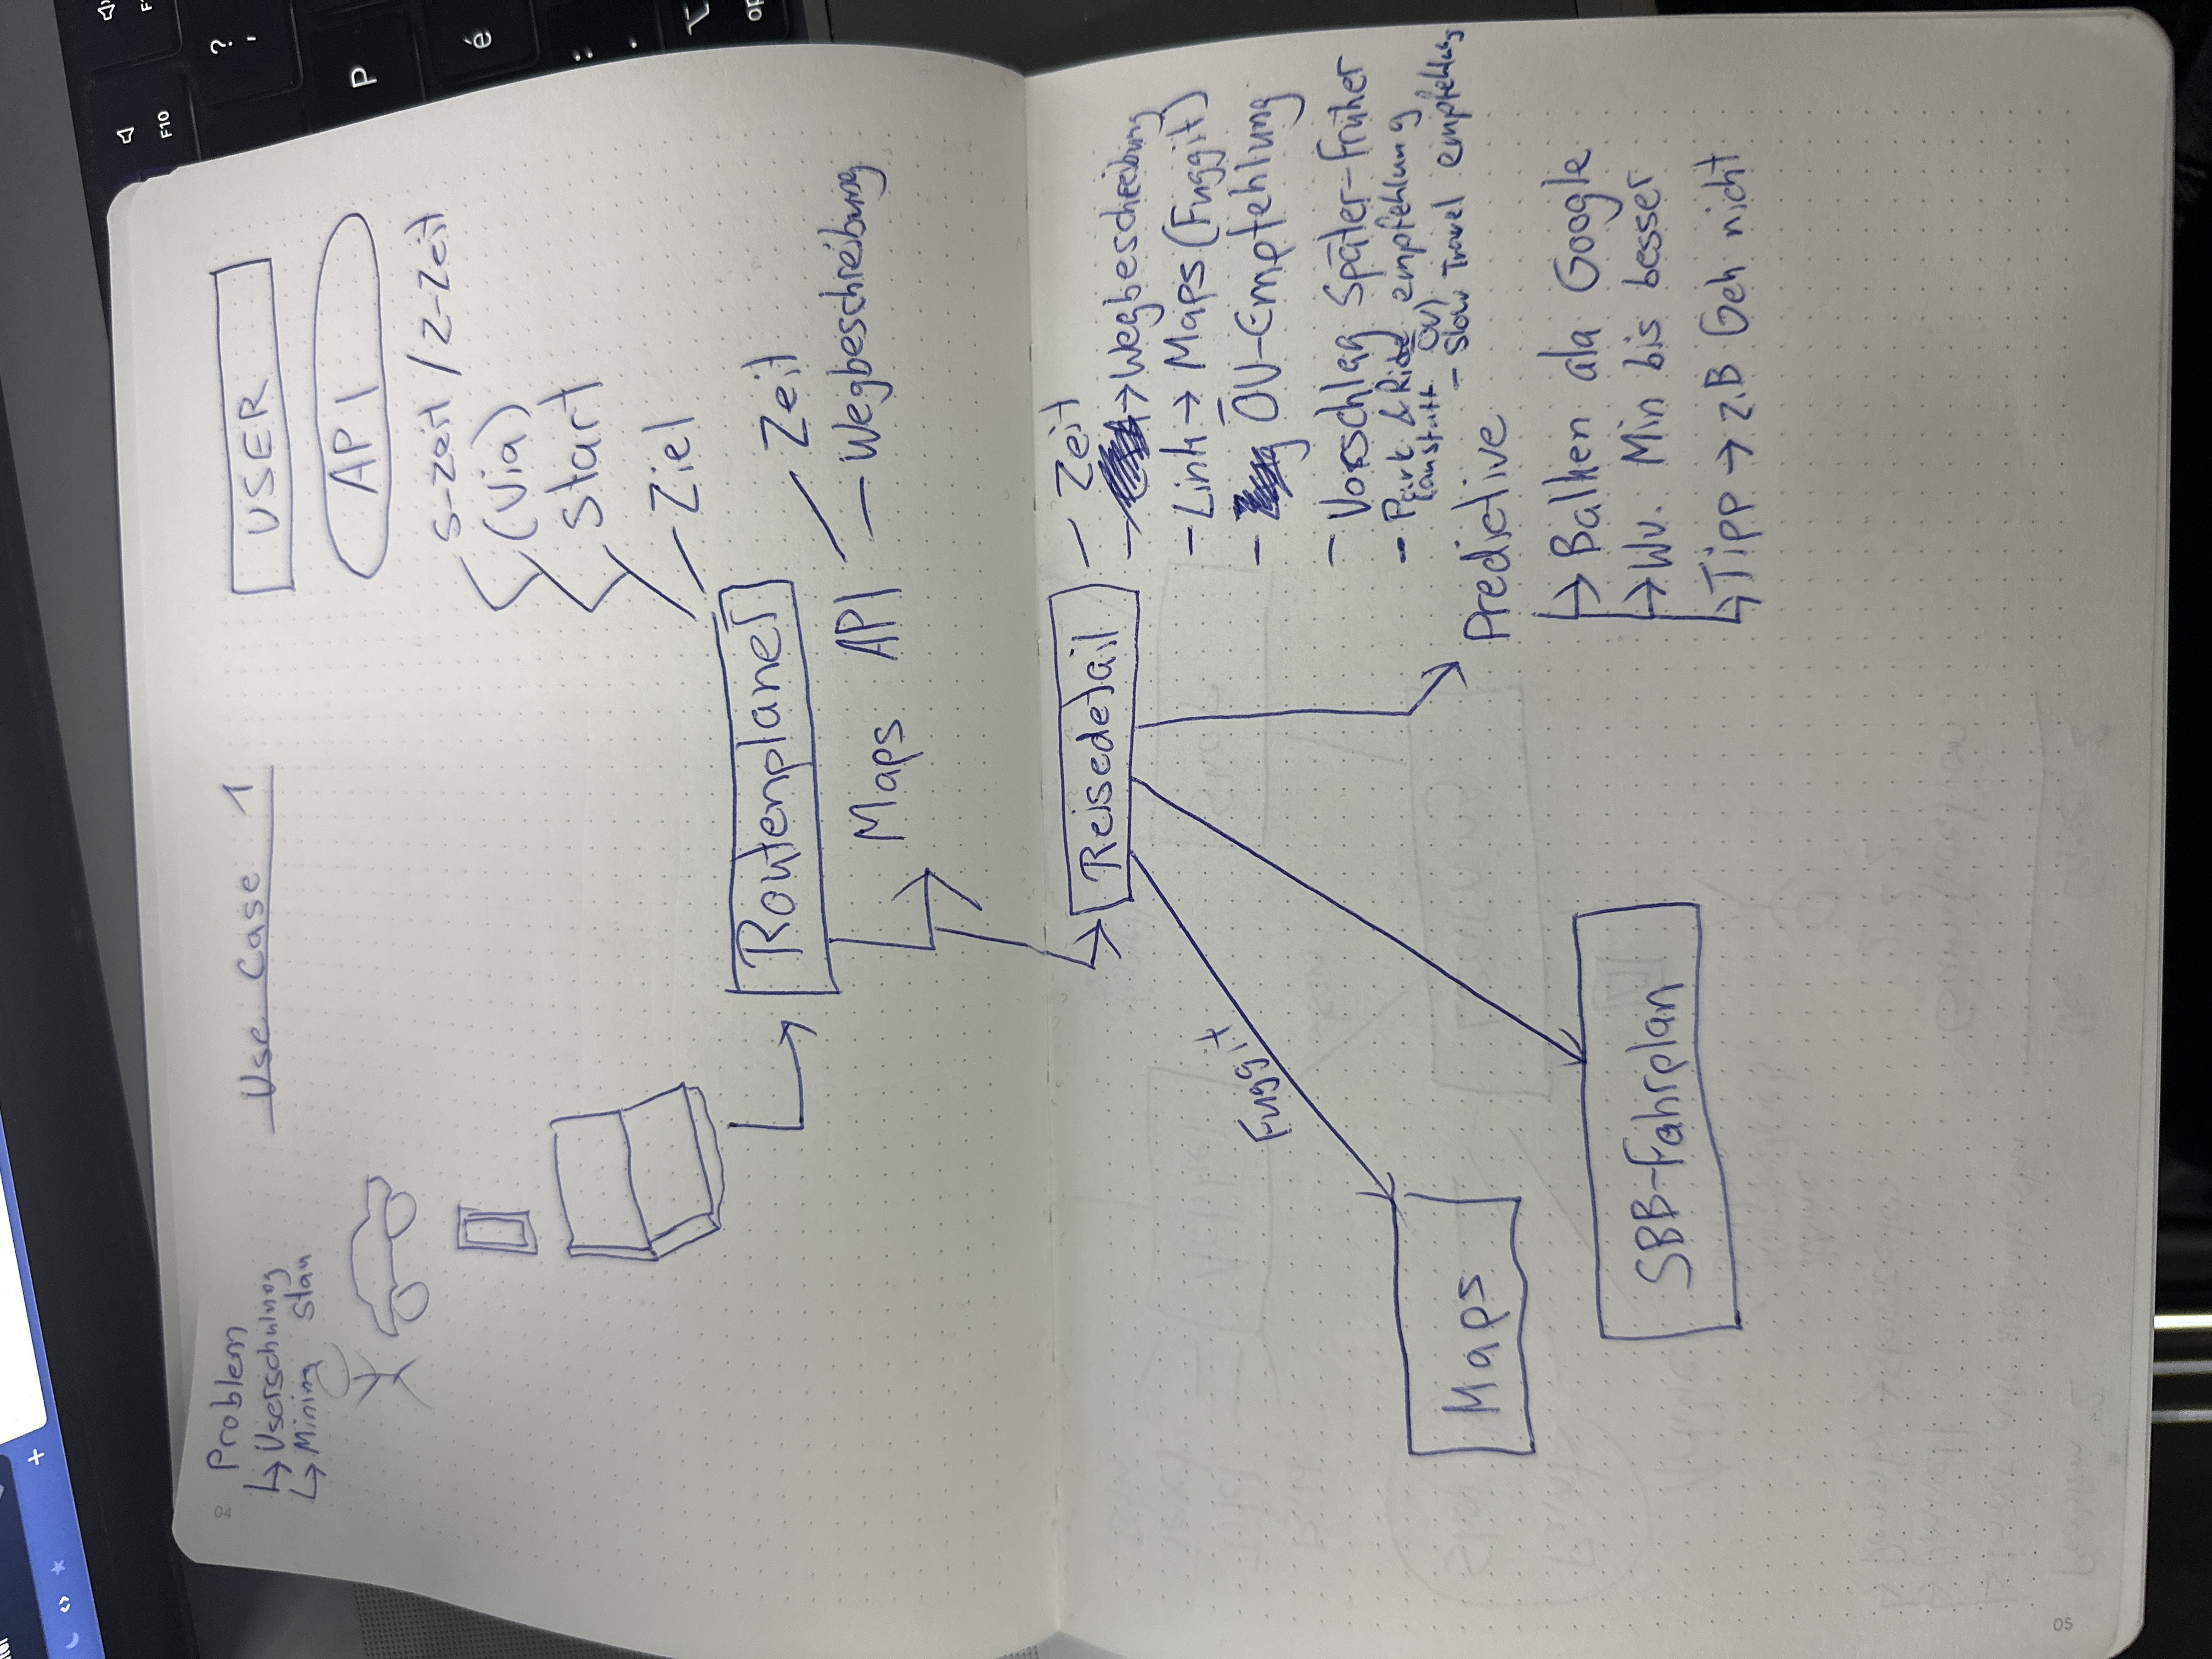 04
Problem
↳ Userschulung
↳ Mining Stau
Use Case 1
USER
API
S-Zeit / Z-Zeit
(Via)
Start
Ziel
Routenplaner
Maps API
- Zeit
- Wegbeschreibung
Reisedetail
- Zeit
→ Wegbeschreibung
- Link → Maps (Fuggit)
- ÖV-Empfehlung
- Vorschlag Später-Früher
- Park & Ride empfehlung
(anstatt ÖV)
- Slow Travel empfehlung
Predictive
↳ Balken ala Google
↳ Wv. Min bis besser
↳ Tipp → z.B Geh nicht
Fuggit
Maps
SBB-Fahrplan
05
F10
?
,
P
é
:
.